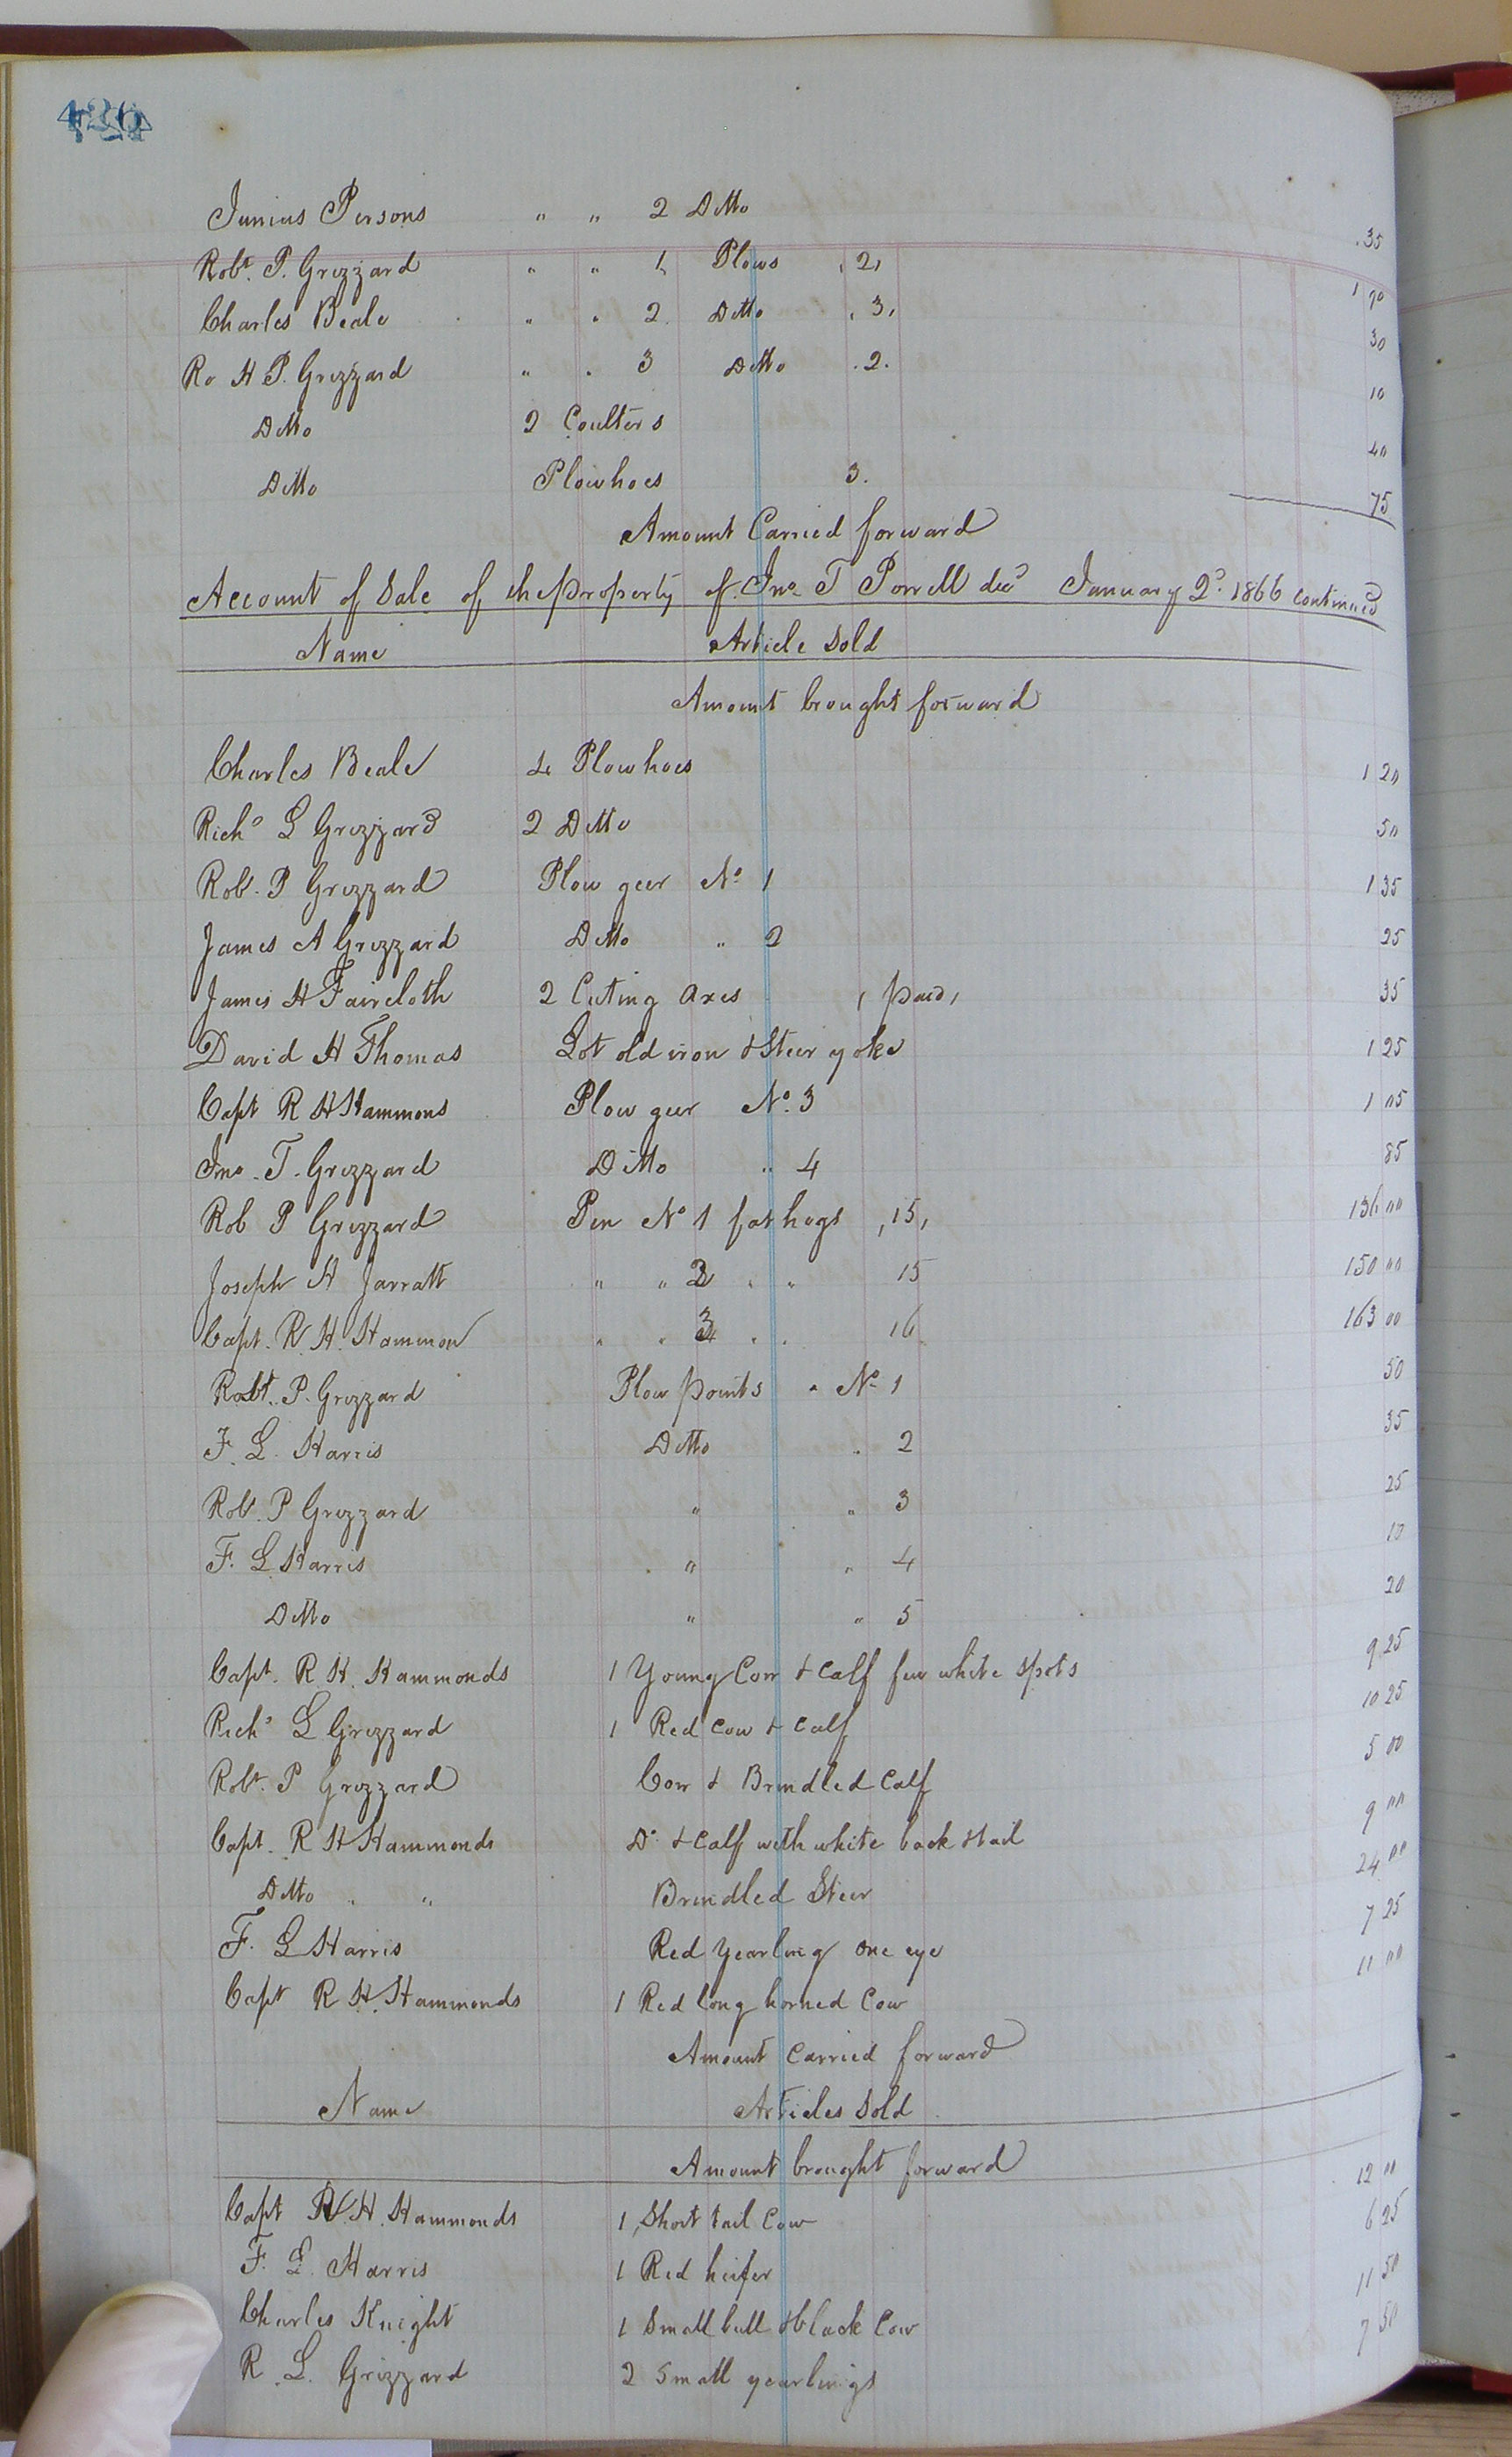 426
Junius Persons " " 2 Ditto .35
Robt. P. Grizzard " " 1, Plows , 2, 1 90
Charles Beale " " 2. Ditto , 3, 30
Ro H P. Grizzard " " 3 Ditto . 2. 10
Ditto 2 Coulters 40
Ditto Plowhoes 3. 75
Amount Carried forward
Account of Sale of the property of Jno T Powell decd January 2d 1866 continued
Name Article Sold
Amount brought forward
Charles Beale 4 Plowhoes 1 20
Richd L Grizzard 2 Ditto 50
Robt. P Grizzard Plow geer No 1 1 35
James A Grizzard Ditto " 2 25
James H Faircloth 2 Cuting Axes , paid, 35
David H Thomas Lot old iron & Steer yoke 1 25
Capt R H Hammons Plow geer No. 3 1 05
Jno. T. Grizzard Ditto " 4 85
Rob P Grizzard Pen No 1 fat hogs , 15, 136 00
Joseph H Jarratt " " 2 " " 15 150 00
Capt. R. H. Hammon " " 3 " " 16 163 00
Robt. P. Grizzard Plow points " No 1 50
F. L. Harris Ditto " 2 35
Robt. P Grizzard " " 3 25
F. L Harris " " 4 10
Ditto " " 5 20
Capt. R H. Hammonds 1 Young Cow & Calf few white spots 9 25
Richd L Grizzard 1 Red Cow & Calf 10 25
Robt. P Grizzard Cow & Brindled Calf 5 00
Capt. R H Hammonds Do & Calf with white back & tail 9 00
Ditto " " Brindled Steer 24 00
F. L Harris Red yearling one eye 7 25
Capt R H. Hammonds 1 Red long horned Cow 11 00
Amount Carried forward
Name Articles Sold
Amount brought forward
Capt R. H. Hammonds 1 Short tail Cow 12 00
F. L. Harris 1 Red heifer 6 25
Charles Knight 1 Small bull & black Cow 11 50
R. L. Grizzard 2 Small yearlings 7 50